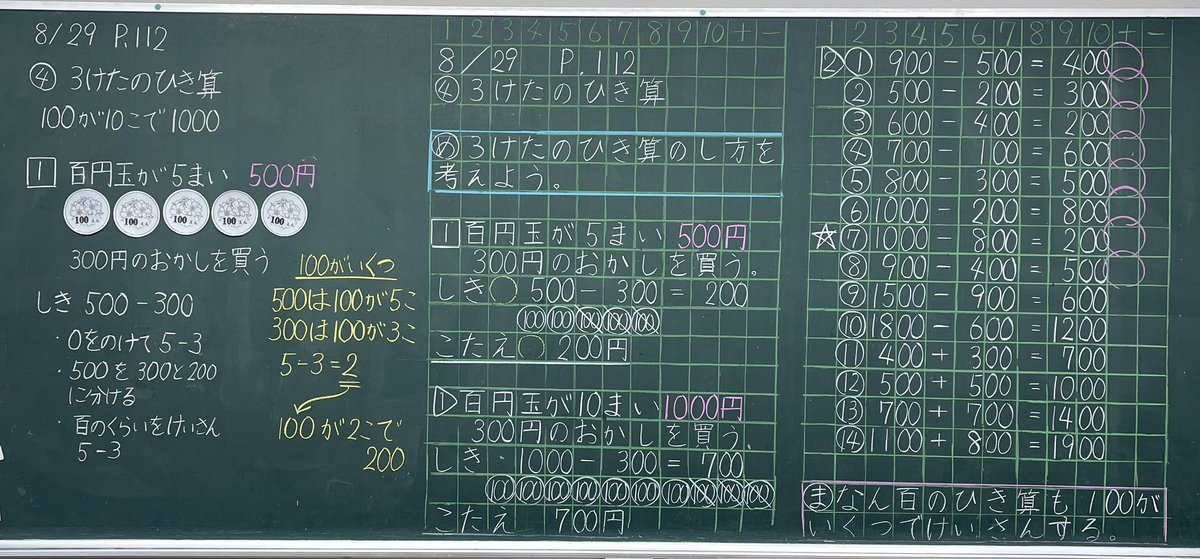 8/29 P.112
④ 3けたのひき算
100が10こで1000
1 百円玉が5まい 500円
100えん 100えん 100えん 100えん 100えん
300円のおかしを買う
しき 500-300
・0をのけて5-3
・500を300と200
に分ける
・百のくらいをけいさん
5-3
100がいくつ
500は100が5こ
300は100が3こ
5-3=2
100が2こで
200
1 2 3 4 5 6 7 8 9 10 + -
8/29 P.112
④ 3けたのひき算
め 3けたのひき算のし方を
考えよう。
1 百円玉が5まい 500円
300円のおかしを買う。
しき 500-300=200
100 100 100 100 100
こたえ 200円
1 百円玉が10まい 1000円
300円のおかしを買う。
しき・1000-300=700
100 100 100 100 100 100 100 100 100 100
こたえ 700円
1 2 3 4 5 6 7 8 9 10 + -
2 ① 900-500=400
② 500-200=300
③ 600-400=200
④ 700-100=600
⑤ 800-300=500
⑥ 1000-200=800
☆⑦ 1000-800=200
⑧ 900-400=500
⑨ 1500-900=600
⑩ 1800-600=1200
⑪ 400+300=700
⑫ 500+500=1000
⑬ 700+700=1400
⑭ 1100+800=1900
ま なん百のひき算も100が
いくつでけいさんする。